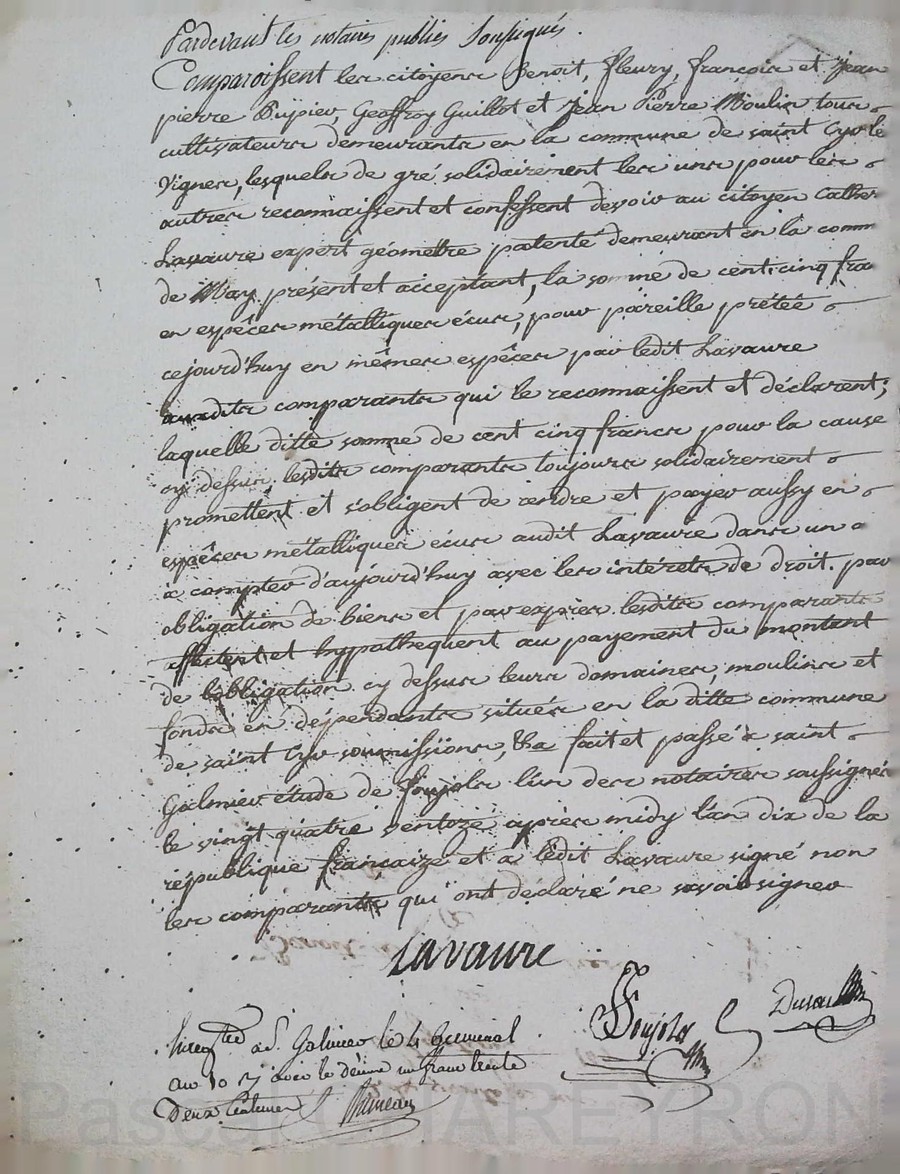 Pardevant les notaires publics soussignés.
Comparoissent les citoyens Benoit, fleury, françois et Jean
pierre Dupiev, Geoffroy Guillot et Jean Pierre Moulin tous
cultivateurs demeurants en la commune de saint Cyr le
Vignes, lesquels de gré solidairement les uns pour les
autres reconnaissent et confessent devoir au citoyen
Lavaure expert géomettre patenté demeurant en la comm
de présent et acceptant, la somme de cent cinq fra
en espêces métalliques écus, pour pareille prétée
cejourd'huy en mêmes espêces par ledit Lavaure
auxdits comparants qui le reconnaissent et déclarent;
laquelle ditte somme de cent cinq francs pour la cause
cy dessus lesdits comparants toujours solidairement
promettent et s'obligent de rendre et payer aussy en
espêces métalliques écus audit Lavaure dans un a
à compter d'aujourd'huy avec les intérets de droit. par
obligation de biens et par exprès lesdits comparants
affectent et hypothequent au payement du montant
de l'obligation cy dessus leurs domaines, moulins et
fonds en dépendants situés en la ditte commune
de saint Cyr soumissions, fait et passé à saint
Galmier étude de Soujols l'un des notaires soussignés
le vingt quatre ventoze après midy l'an dix de la
république françaize et a ledit Lavaure signé non
les comparants qui ont déclaré ne savoir signer
Lavaure
Soujols
Enregtré à St. Galmier le 4 Germinal
an 10 avec le décime un franc trente
Deux Centimes
Pascal CHAREYRON